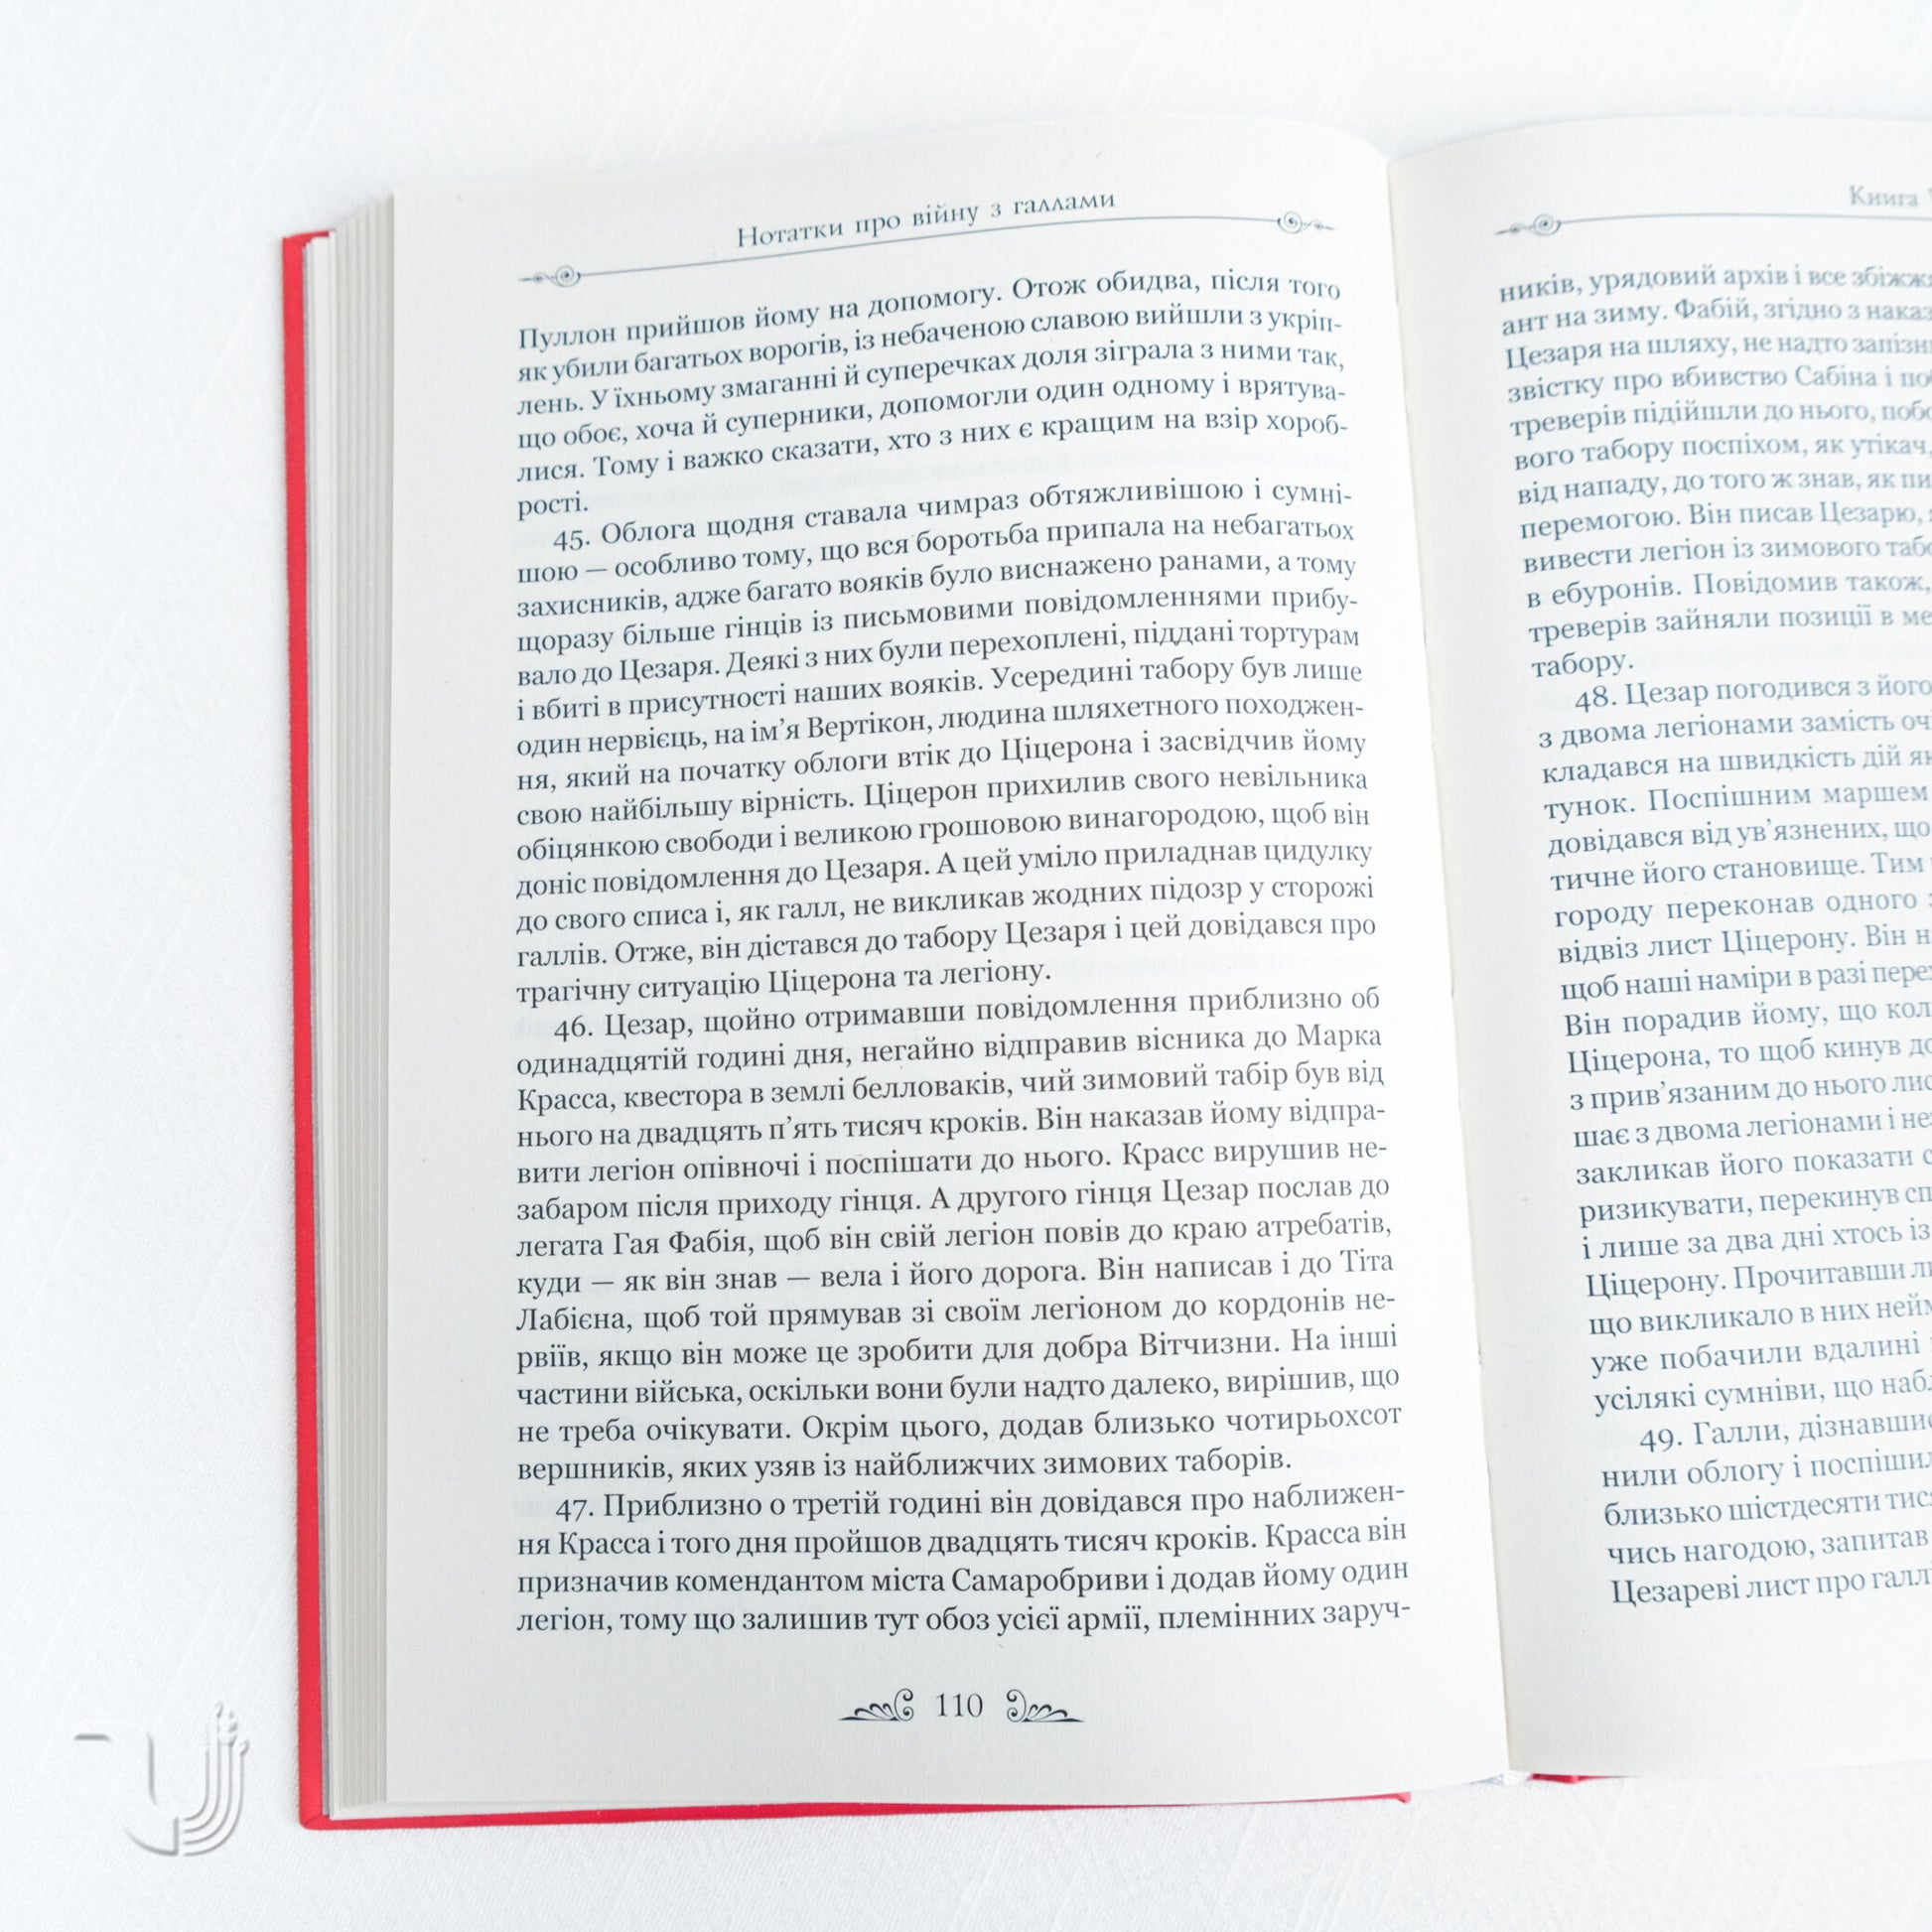 Нотатки про війну з галлами
Пуллон прийшов йому на допомогу. Отож обидва, після того
як убили багатьох ворогів, із небаченою славою вийшли з укріп-
лень. У їхньому змаганні й суперечках доля зіграла з ними так,
що обоє, хоча й суперники, допомогли один одному і врятува-
лися. Тому і важко сказати, хто з них є кращим на взір хороб-
рості.
45. Облога щодня ставала чимраз обтяжливішою і сумні-
шою — особливо тому, що вся боротьба припала на небагатьох
захисників, адже багато вояків було виснажено ранами, а тому
щоразу більше гінців із письмовими повідомленнями прибу-
вало до Цезаря. Деякі з них були перехоплені, піддані тортурам
і вбиті в присутності наших вояків. Усередині табору був лише
один нервієць, на ім’я Вертікон, людина шляхетного походжен-
ня, який на початку облоги втік до Ціцерона і засвідчив йому
свою найбільшу вірність. Ціцерон прихилив свого невільника
обіцянкою свободи і великою грошовою винагородою, щоб він
доніс повідомлення до Цезаря. А цей уміло приладнав цидулку
до свого списа і, як галл, не викликав жодних підозр у сторожі
галлів. Отже, він дістався до табору Цезаря і цей довідався про
трагічну ситуацію Ціцерона та легіону.
46. Цезар, щойно отримавши повідомлення приблизно об
одинадцятій годині дня, негайно відправив вісника до Марка
Красса, квестора в землі белловаків, чий зимовий табір був від
нього на двадцять п’ять тисяч кроків. Він наказав йому відпра-
вити легіон опівночі і поспішати до нього. Красс вирушив не-
забаром після приходу гінця. А другого гінця Цезар послав до
легата Гая Фабія, щоб він свій легіон повів до краю атребатів,
куди — як він знав — вела і його дорога. Він написав і до Тіта
Лабієна, щоб той прямував зі своїм легіоном до кордонів не-
рвіїв, якщо він може це зробити для добра Вітчизни. На інші
частини війська, оскільки вони були надто далеко, вирішив, що
не треба очікувати. Окрім цього, додав близько чотирьохсот
вершників, яких узяв із найближчих зимових таборів.
47. Приблизно о третій годині він довідався про наближен-
ня Красса і того дня пройшов двадцять тисяч кроків. Красса він
призначив комендантом міста Самаробриви і додав йому один
легіон, тому що залишив тут обоз усієї армії, племінних заруч-
110
Книга
ників, урядовий архів і все збіжжя
ант на зиму. Фабій, згідно з
Цезаря на шляху, не надто
звістку про вбивство Сабіна і
треверів підійшли до нього,
вого табору поспіхом, як утікач,
від нападу, до того ж знав, як
перемогою. Він писав Цезарю,
вивести легіон із зимового
в ебуронів. Повідомив також,
треверів зайняли позиції в
табору.
48. Цезар погодився з його
з двома легіонами замість
кладався на швидкість дій
тунок. Поспішним маршем
довідався від ув’язнених, що
тичне його становище. Тим
городу переконав одного
відвіз лист Ціцерону. Він
щоб наші наміри в разі
Він порадив йому, що
Ціцерона, то щоб кинув
з прив’язаним до нього
шає з двома легіонами і
закликав його показати
ризикувати, перекинув
і лише за два дні хтось із
Ціцерону. Прочитавши
що викликало в них
уже побачили вдалині
усілякі сумніви, що
49. Галли,
нили облогу і
близько шістдесяти
чись нагодою, запитав
Цезареві лист про